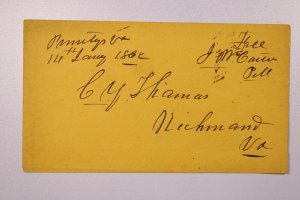 Pruntys Va
14th Jany 1862
Free
J McCann
PM
C Y Thomas
Richmond
Va